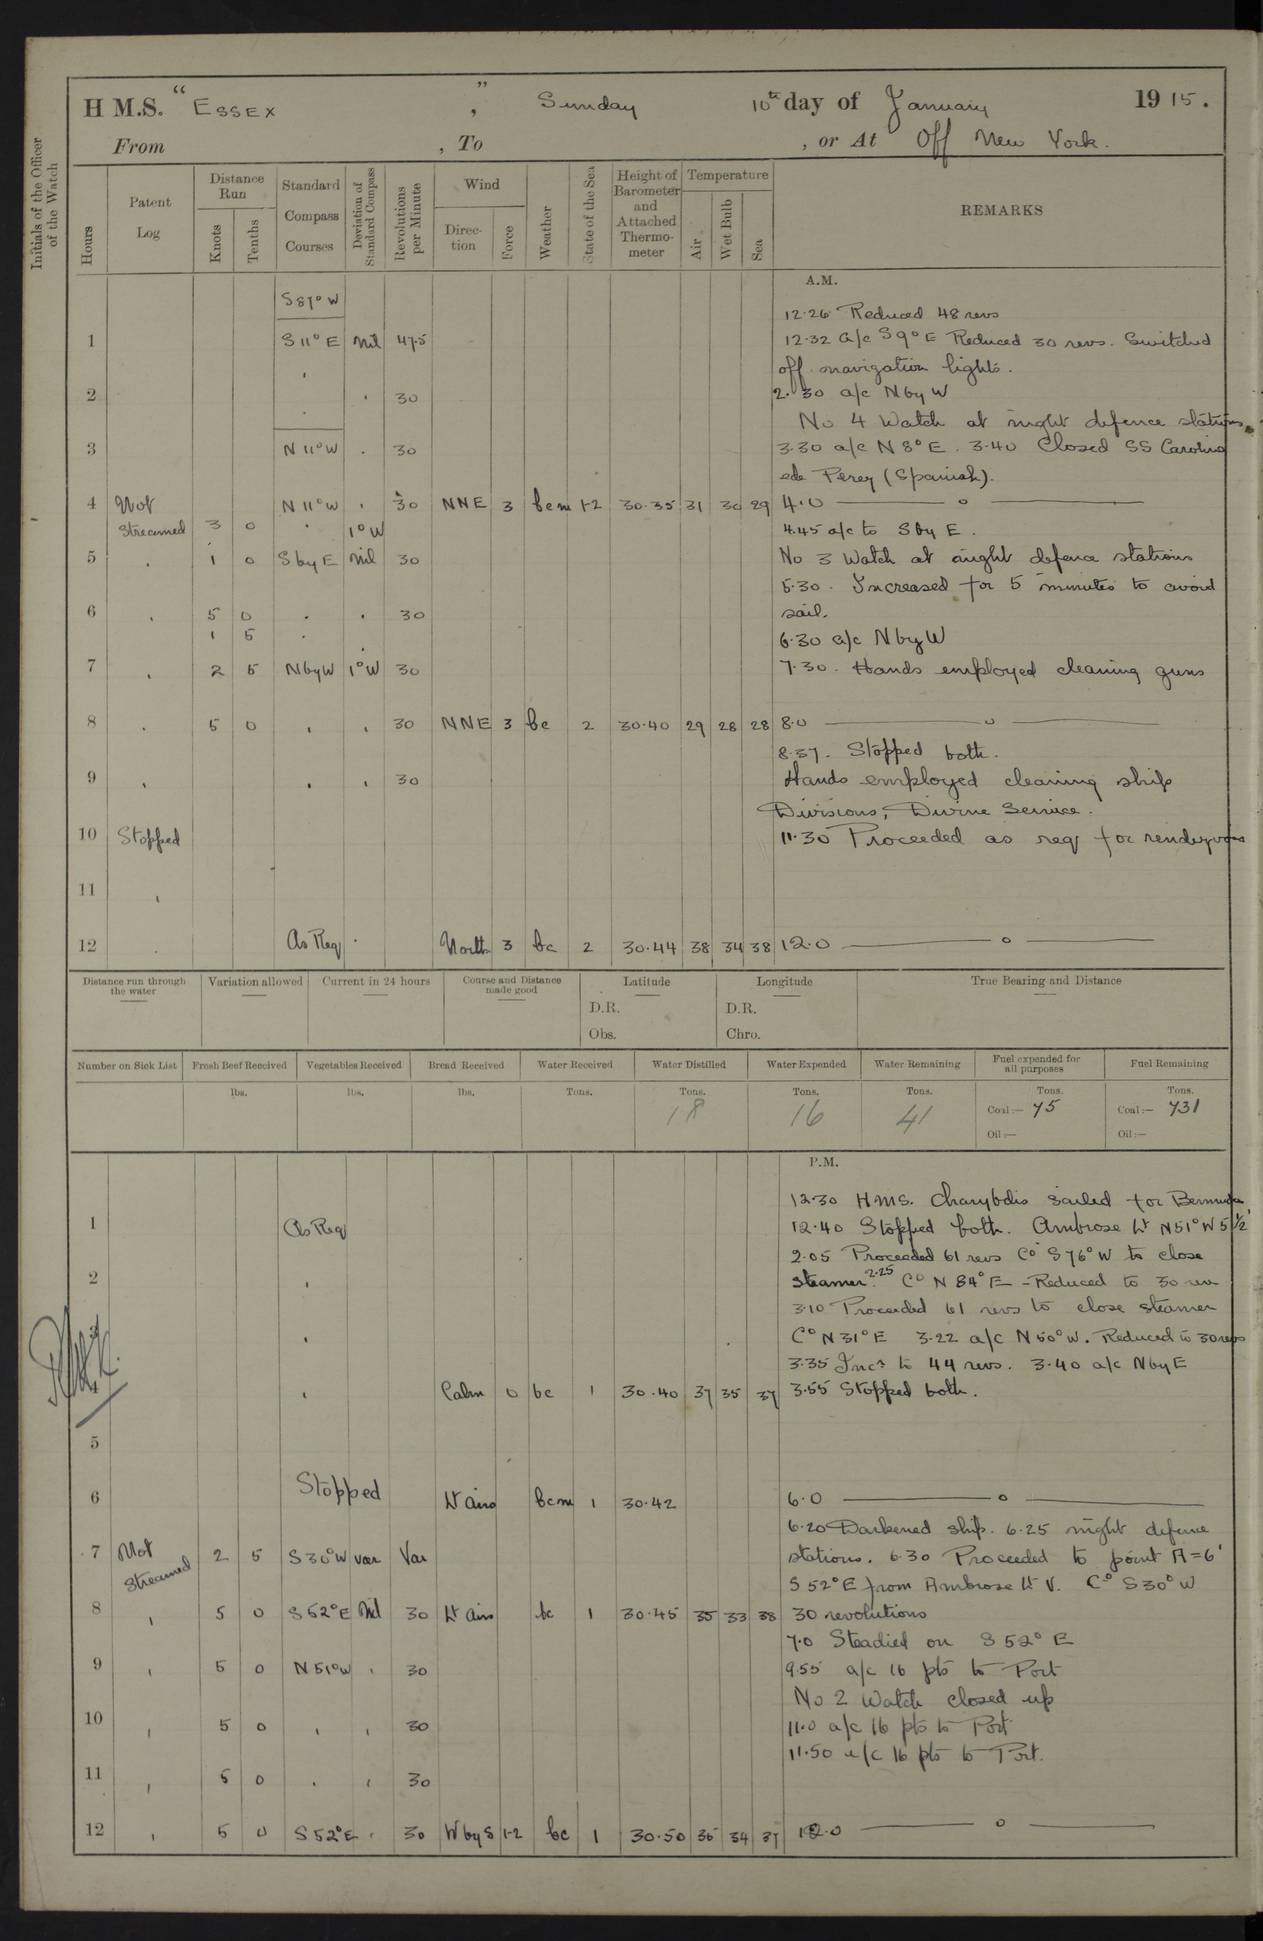 H M.S. "Essex", Sunday 10th day of January 1915.
From , To , or At Off New York.
Initials of the Officer of the Watch
Hours
Patent Log
Distance Run
Knots
Tenths
Standard Compass Courses
Deviation of Standard Compass
Revolutions per Minute
Wind
Direction
Force
Weather
State of the Sea
Height of Barometer and Attached Thermometer
Temperature
Air
Wet Bulb
Sea
REMARKS
A.M.
S 81° W
12.26 Reduced 48 revs
1 S 11° E Nil 47.5 12.32 a/c S 9° E Reduced 30 revs. Switched
off navigation lights.
2 30 2.30 a/c N by W
No 4 Watch at night defence stations
3 N 11° W 30 3.30 a/c N 8° E. 3.40 Closed SS Carolina
ede Perey (Spanish).
4 Not N 11° W 30 NNE 3 bcm 1-2 30.35 31 30 29 4.0 — o —
Streamed 3 0 1° W 4.45 a/c to S by E.
5 1 0 S by E Nil 30 No 3 Watch at night defence stations
5.30. Increased for 5 minutes to avoid
6 5 0 30 sail.
1 5 6.30 a/c N by W
7 2 5 N by W 1° W 30 7.30. Hands employed cleaning guns
8 5 0 30 NNE 3 bc 2 30.40 29 28 28 8.0 — o —
8.37. Stopped both.
9 30 Hands employed cleaning ship
Divisions, Divine Service.
10 Stopped 11.30 Proceeded as req for rendezvous
11
12 As Req North 3 bc 2 30.44 38 34 38 12.0 — o —
Distance run through the water
Variation allowed
Current in 24 hours
Course and Distance made good
Latitude
D.R.
Obs.
Longitude
D.R.
Chro.
True Bearing and Distance
Number on Sick List
Fresh Beef Received
lbs.
Vegetables Received
lbs.
Bread Received
lbs.
Water Received
Tons.
Water Distilled
Tons.
18
Water Expended
Tons.
16
Water Remaining
Tons.
41
Fuel expended for all purposes
Tons.
Coal:— 75
Oil:—
Fuel Remaining
Tons.
Coal:— 731
Oil:—
P.M.
12.30 H.M.S. Charybdis sailed for Bermuda
1 As Req 12.40 Stopped both. Ambrose Lt N 51° W 5 1/2'
2.05 Proceeded 61 revs Co S 76° W to close
2 steamer. 2.25 Co N 84° E - Reduced to 30 rev
3.10 Proceeded 61 revs to close steamer
3 Co N 31° E 3.22 a/c N 50° W. Reduced to 30 revs
3.35 Incs to 44 revs. 3.40 a/c N by E
4 Calm 0 bc 1 30.40 37 35 37 3.55 Stopped both.
5
6 Stopped Lt airs bcm 1 30.42 6.0 — o —
6.20 Darkened ship. 6.25 night defence
7 Not Streamed 2 5 S 30° W var Var stations. 6.30 Proceeded to point A = 6'
S 52° E from Ambrose Lt V. Co S 30° W
8 5 0 S 52° E Nil 30 Lt airs bc 1 30.45 35 33 38 30 revolutions
7.0 Steadied on S 52° E
9 5 0 N 51° W 30 9.55 a/c 16 pts to Port
No 2 Watch closed up
10 5 0 30 11.0 a/c 16 pts to Port
11.50 a/c 16 pts to Port.
11 5 0 30
12 5 0 S 52° E 30 W by S 1-2 bc 1 30.50 36 34 37 12.0 — o —